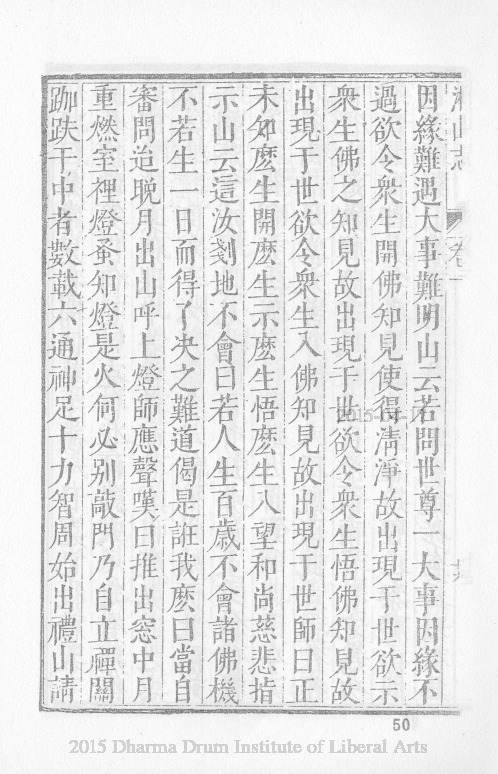 因緣難遇大事難明山云若問世尊一大事因緣不
過欲令衆生開佛知見使得淸淨故出現于世欲示
衆生佛之知見故出現于世欲令衆生悟佛知見故
出現于世欲令衆生入佛知見故出現于世師曰正
未知麽生開麽生示麽生悟麽生入望和尚慈悲指
示山云這汝剗地不會曰若人生百歲不會諸佛機
不若生一日而得了决之難道偈是誑我麽曰當自
審問迨晚月出山呼上燈師應聲嘆曰推出窓中月
重燃室裡燈蚤知燈是火何必别敲門乃自立禪關
跏趺于中者數載六通神足十力智周始出禮山請
50
2015 Dharma Drum Institute of Liberal Arts